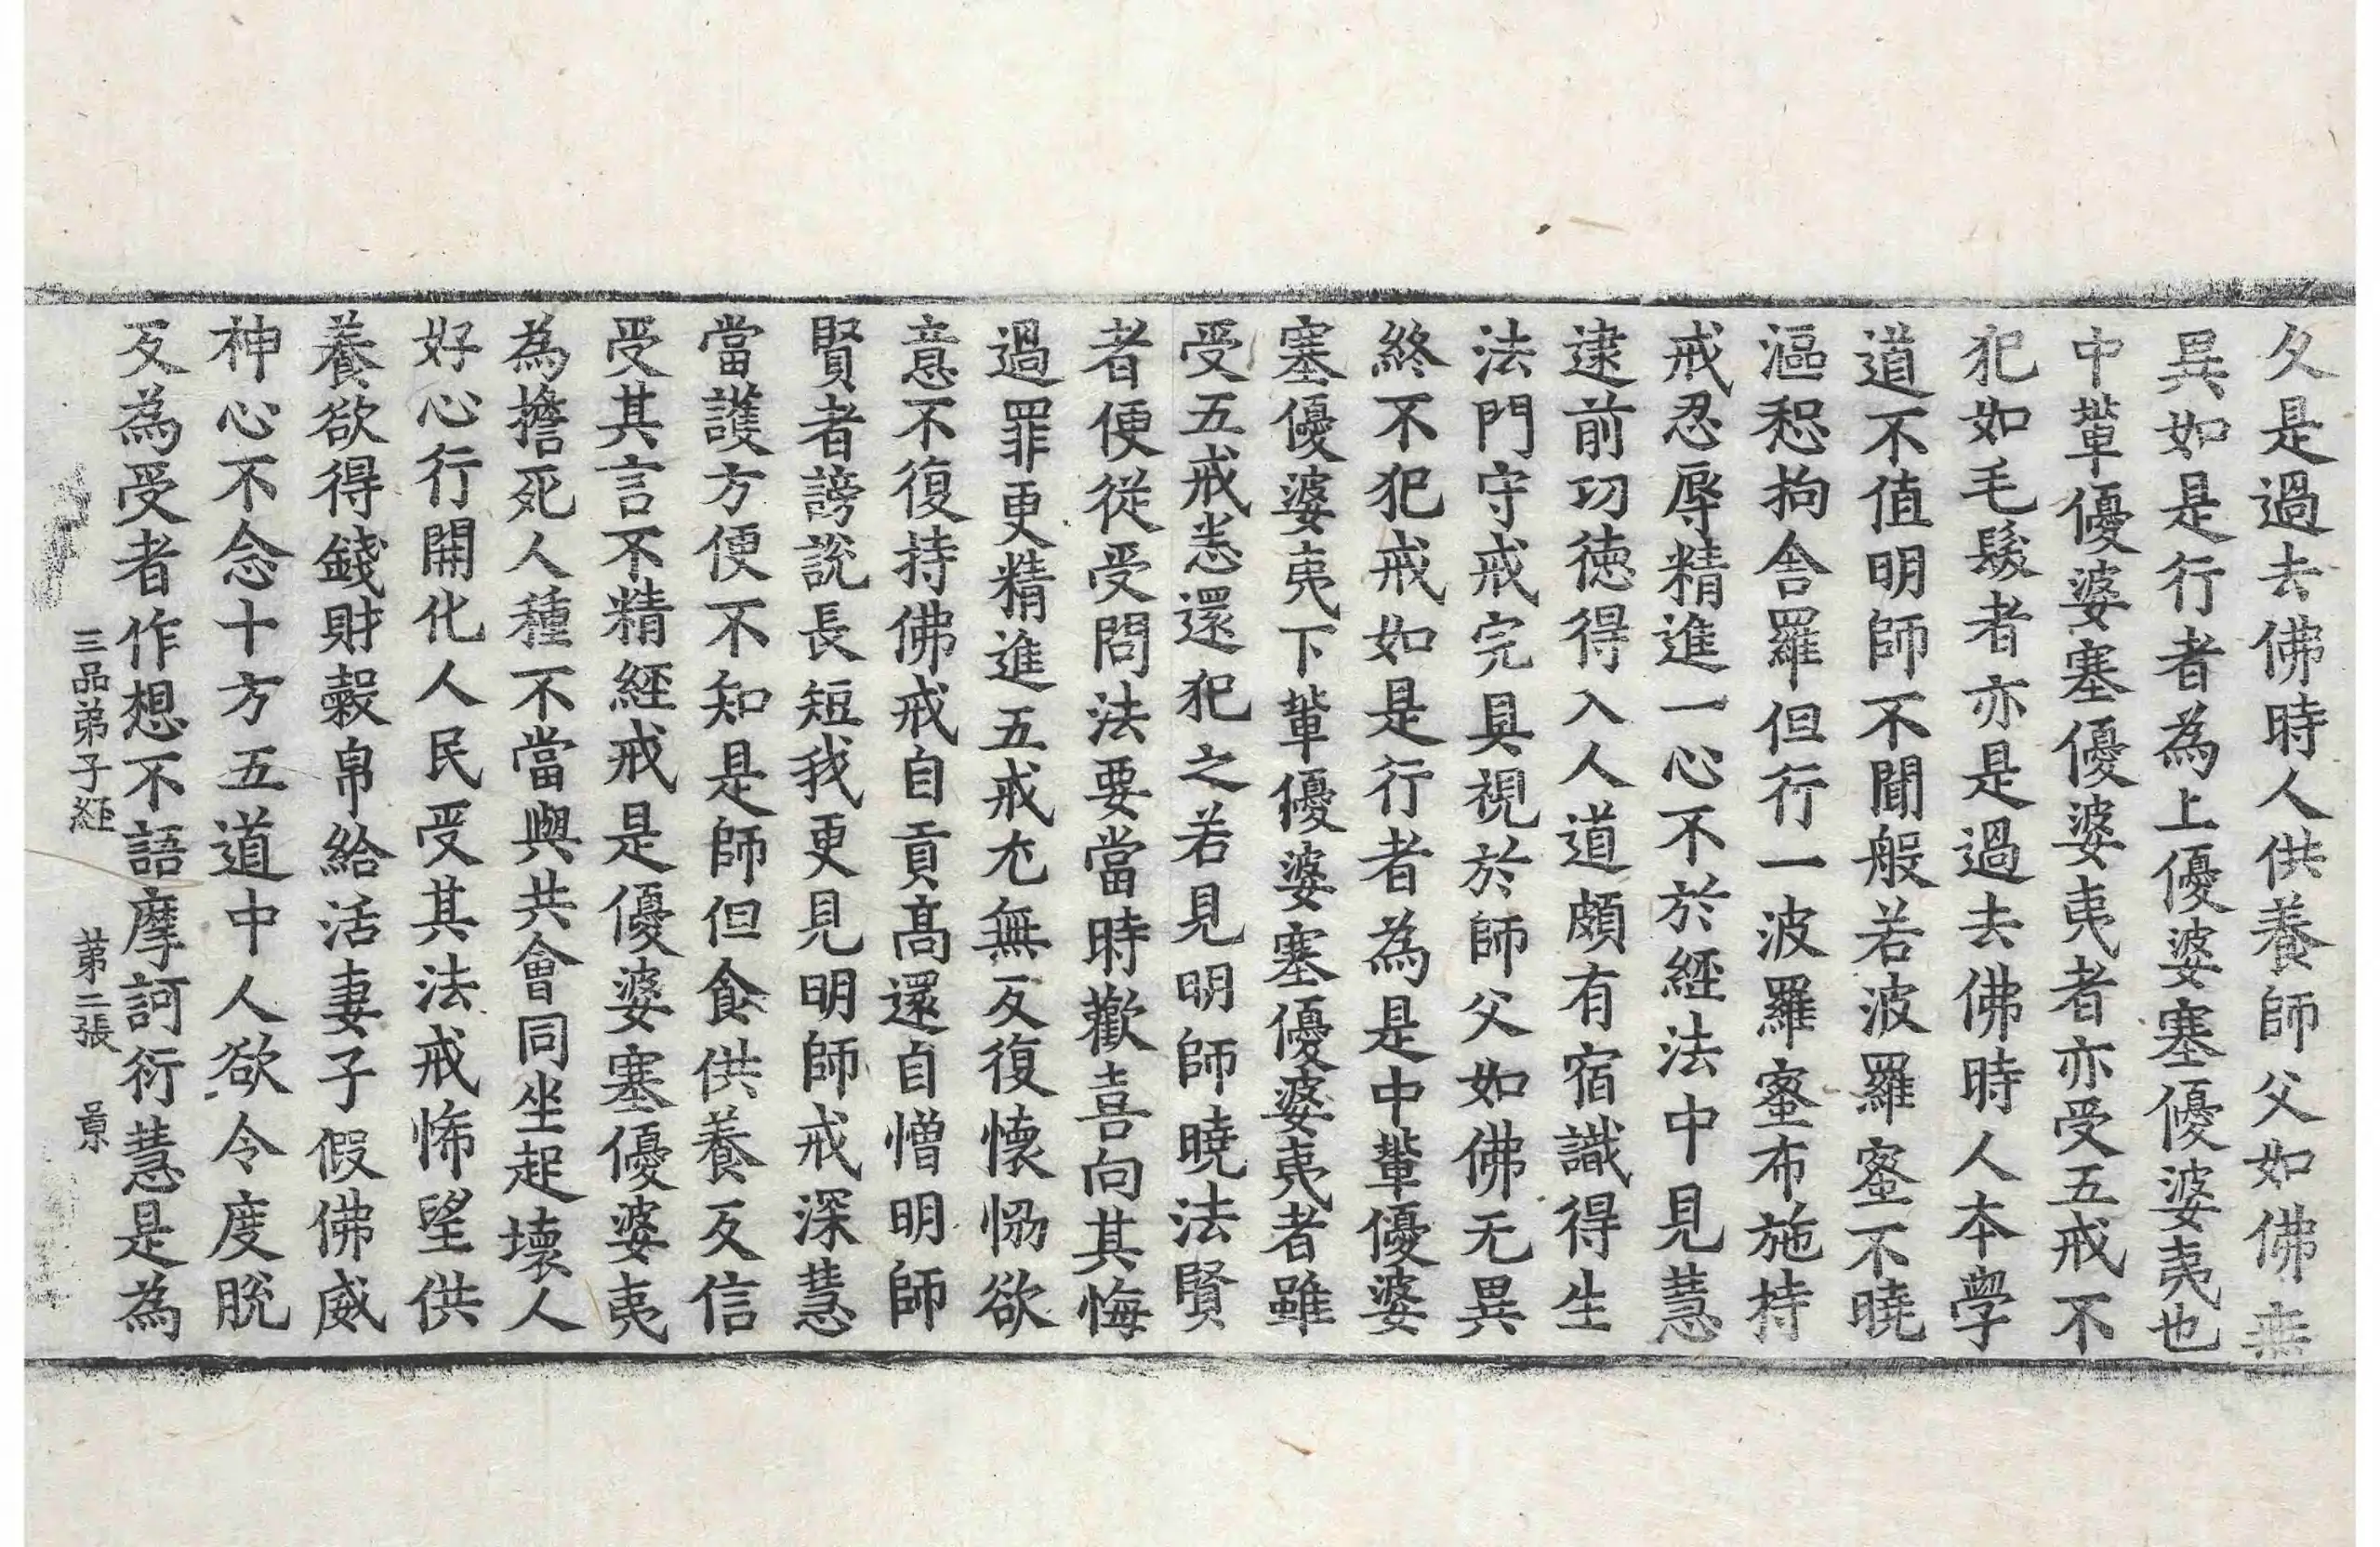 久是過去佛時人供養師父如佛無
異如是行者為上優婆塞優婆夷也
中輩優婆塞優婆夷者亦受五戒不
犯如毛髮者亦是過去佛時人本學
道不值明師不聞般若波羅蜜不曉
漚惒拘舍羅但行一波羅蜜布施持
戒忍辱精進一心不於經法中見慧
逮前功徳得入人道頗有宿識得生
法門守戒完具視於師父如佛无異
終不犯戒如是行者為是中輩優婆
塞優婆夷下輩優婆塞優婆夷者雖
受五戒悉還犯之若見明師曉法賢
者便從受問法要當時歡喜向其悔
過罪更精進五戒尤無反復懷㤼欲
意不復持佛戒自貢高還自憎明師
賢者謗說長短我更見明師戒深慧
當護方便不知是師但食供養反信
受其言不精經戒是優婆塞優婆夷
為擔死人種不當與共會同坐起壞人
好心行開化人民受其法戒怖望供
養欲得錢財穀帛給活妻子假佛威
神心不念十方五道中人欲令度脫
反為受者作想不語摩訶衍慧是為
三品弟子経　第二張　景